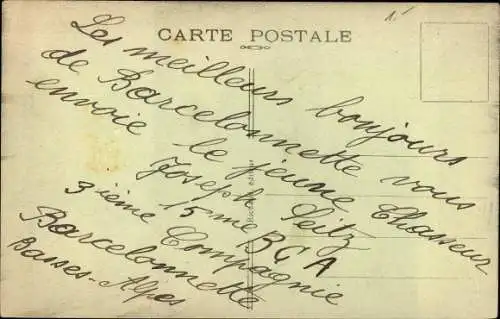 CARTE POSTALE
Les meilleurs bonjours
de Barcelonnette vous
envoie le jeune Chasseur
Joseph Seitz
15me BCA
3ième Compagnie
Barcelonnette
Basses-Alpes